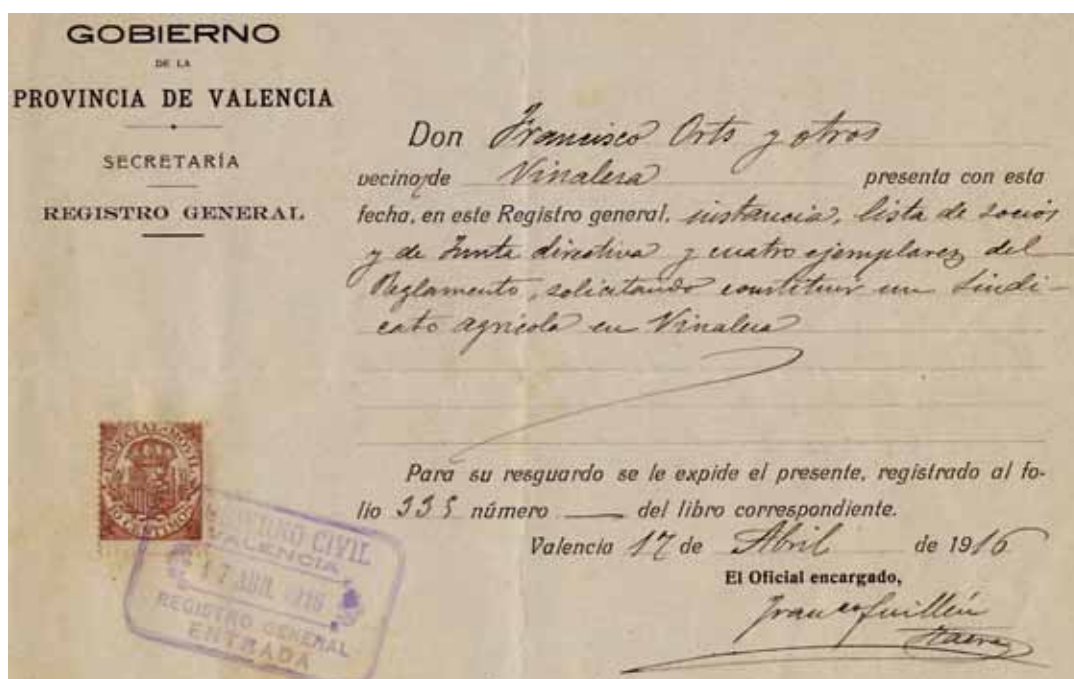 GOBIERNO
DE LA
PROVINCIA DE VALENCIA
SECRETARÍA
REGISTRO GENERAL
Don Francisco Orts y otros
vecinos de Vinalesa presenta con esta
fecha, en este Registro general, instancia, lista de socios
y de Junta directiva y cuatro ejemplares del
Reglamento, solicitando constituir un Sindi-
cato agrícola en Vinalesa
Para su resguardo se le expide el presente, registrado al fo-
lio 335 número del libro correspondiente.
Valencia 17 de Abril de 1916
El Oficial encargado,
Franco Guillén
ESPECIAL MOVIL
10 CENTIMOS
GOBIERNO CIVIL
VALENCIA
17 ABR. 1916
REGISTRO GENERAL
ENTRADA